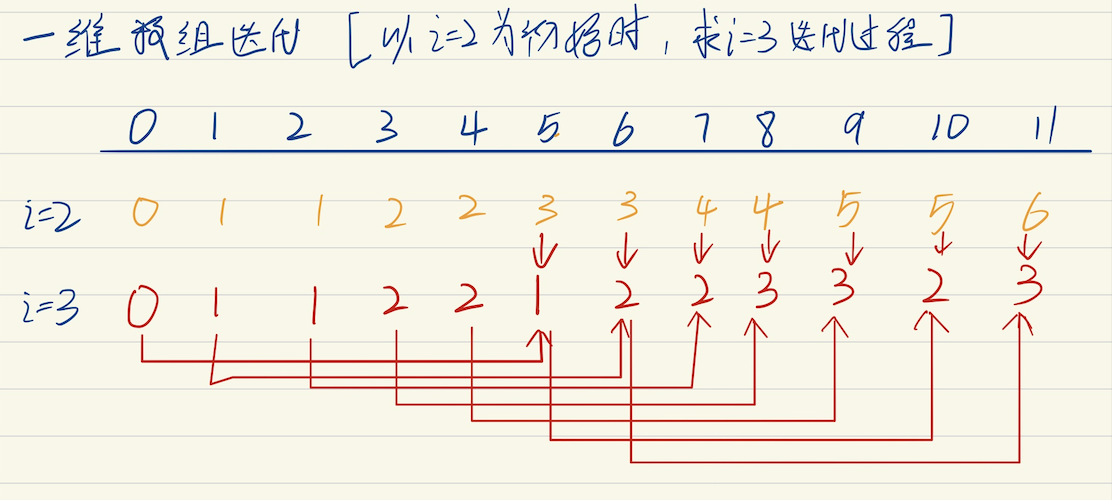 一维数组迭代 [以i=2为初始时,求i=3迭代过程]
0 1 2 3 4 5 6 7 8 9 10 11
i=2 0 1 1 2 2 3 3 4 4 5 5 6
i=3 0 1 1 2 2 1 2 2 3 3 2 3